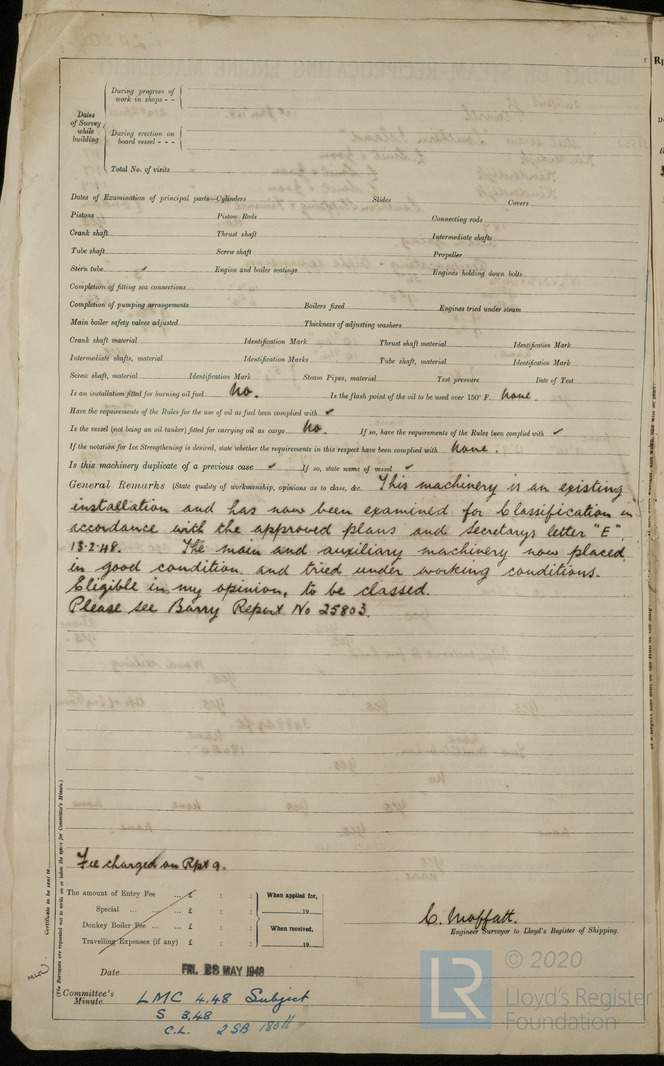 During progress of
work in shops - -
Dates
of Survey
while
building
During erection on
board vessel - - -
Total No. of visits
Dates of Examination of principal parts—Cylinders Slides Covers
Pistons Piston Rods Connecting rods
Crank shaft Thrust shaft Intermediate shafts
Tube shaft Screw shaft Propeller
Stern tube ✓ Engine and boiler seatings Engines holding down bolts
Completion of fitting sea connections
Completion of pumping arrangements Boilers fixed Engines tried under steam
Main boiler safety valves adjusted Thickness of adjusting washers
Crank shaft material Identification Mark Thrust shaft material Identification Mark
Intermediate shafts, material Identification Marks Tube shaft, material Identification Mark
Screw shaft, material Identification Mark Steam Pipes, material Test pressure Date of Test
Is an installation fitted for burning oil fuel No. Is the flash point of the oil to be used over 150° F. None.
Have the requirements of the Rules for the use of oil as fuel been complied with ✓
Is the vessel (not being an oil tanker) fitted for carrying oil as cargo No. If so, have the requirements of the Rules been complied with ✓
If the notation for Ice Strengthening is desired, state whether the requirements in this respect have been complied with None.
Is this machinery duplicate of a previous case ✓ If so, state name of vessel ✓
General Remarks (State quality of workmanship, opinions as to class, &c. This machinery is an existing
installation and has now been examined for Classification in
accordance with the approved plans and secretarys letter "E"
13-2-48. The main and auxiliary machinery now placed
in good condition and tried under working conditions.
Eligible in my opinion, to be classed.
Please see Barry Report No 25803.
Fee charged on Rpt 9.
The amount of Entry Fee ... £ : : When applied for,
Special ... ... £ : : 19
Donkey Boiler Fee ... £ : : When received,
Travelling Expenses (if any) £ : : 19
C. Moffatt.
Engineer Surveyor to Lloyd's Register of Shipping.
Date FRI. 28 MAY 1948
Committee's
Minute
LMC 4.48 Subject
S 3.48
C.L. 2SB 180 lb
Certificate to be sent to
(The Surveyors are requested not to write on or below the space for Committee's Minute.)
LR
© 2020
Lloyd's Register
Foundation